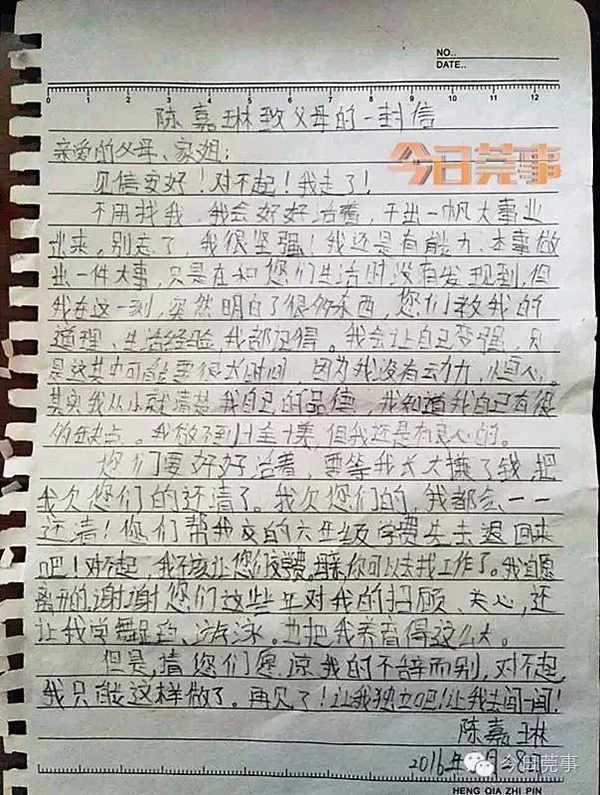 NO..
DATE..
0 1 2 3 4 5 6 7 8 9 10 11 12
陈嘉琳致父母的一封信
亲爱的父母、家姐：
今日莞事
见信安好！对不起！我走了！
不用找我，我会好好活着，干出一帆大事业
出来。别走了，我很坚强！我还是有能力、本事做
出一件大事，只是在和您们生活时没有发现到，但
我在这一刻，突然明白了很多东西，您们教我的
道理、生活经验，我都记得。我会让自己变强，只
是这其中可能要很长时间，因为我没有动力，恒心。
其实我从小就清楚我自己的品德，我知道我自己有很
多缺点。我做不到十全十美，但我还是有良心的。
您们要好好活着，要等我长大揍了钱，把
我欠您们的还清了。我欠您们的，我都会一一
还清！您们帮我交的六年级学费先去退回来
吧！对不起，我不该让您们交学费。母亲，你可以去找工作了。我自愿
离开的，谢谢您们这些年对我的招顾、关心，还
让我学舞蹈、游泳。也把我养育得这么大。
但是，请您们愿凉我的不辞而别，对不起，
我只能这样做了。再见了！让我独立吧！让我去闯一闯！
陈嘉琳
2016年 月28日
今日莞事
HENG QIA ZHI PIN